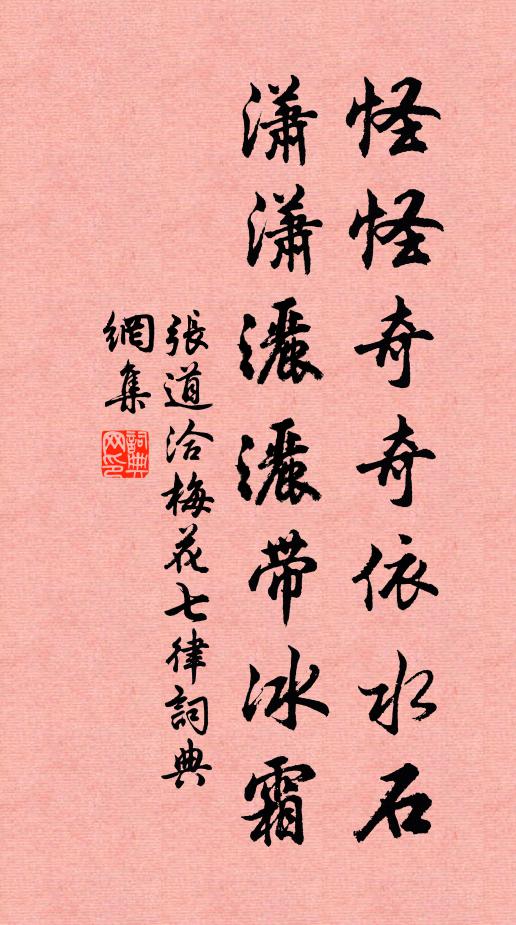 怪怪奇奇依水石
瀟瀟灑灑帶冰霜
張道洽梅花七律詞典
網集
詞典
网印